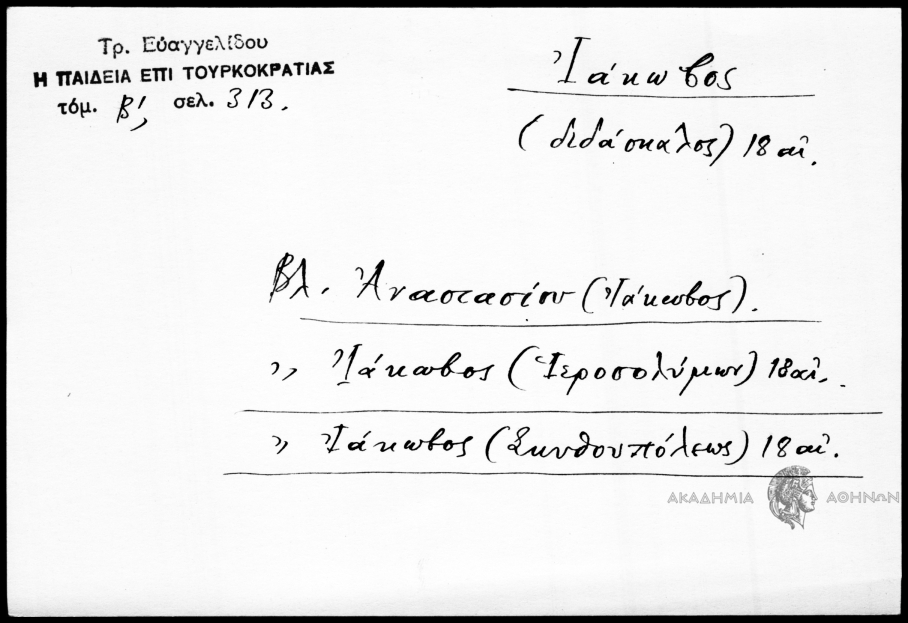 Τρ. Εὐαγγελίδου
Η ΠΑΙΔΕΙΑ ΕΠΙ ΤΟΥΡΚΟΚΡΑΤΙΑΣ
τόμ. Β', σελ. 313.
Ἰάκωβος
(διδάσκαλος) 18 αἰ.
Βλ. Ἀναστασίου (Ἰάκωβος).
,, Ἰάκωβος (Ἱεροσολύμων) 18 αἰ.
,, Ἰάκωβος (Σκυθουπόλεως) 18 αἰ.
ΑΚΑΔΗΜΙΑ ΑΘΗΝΩΝ